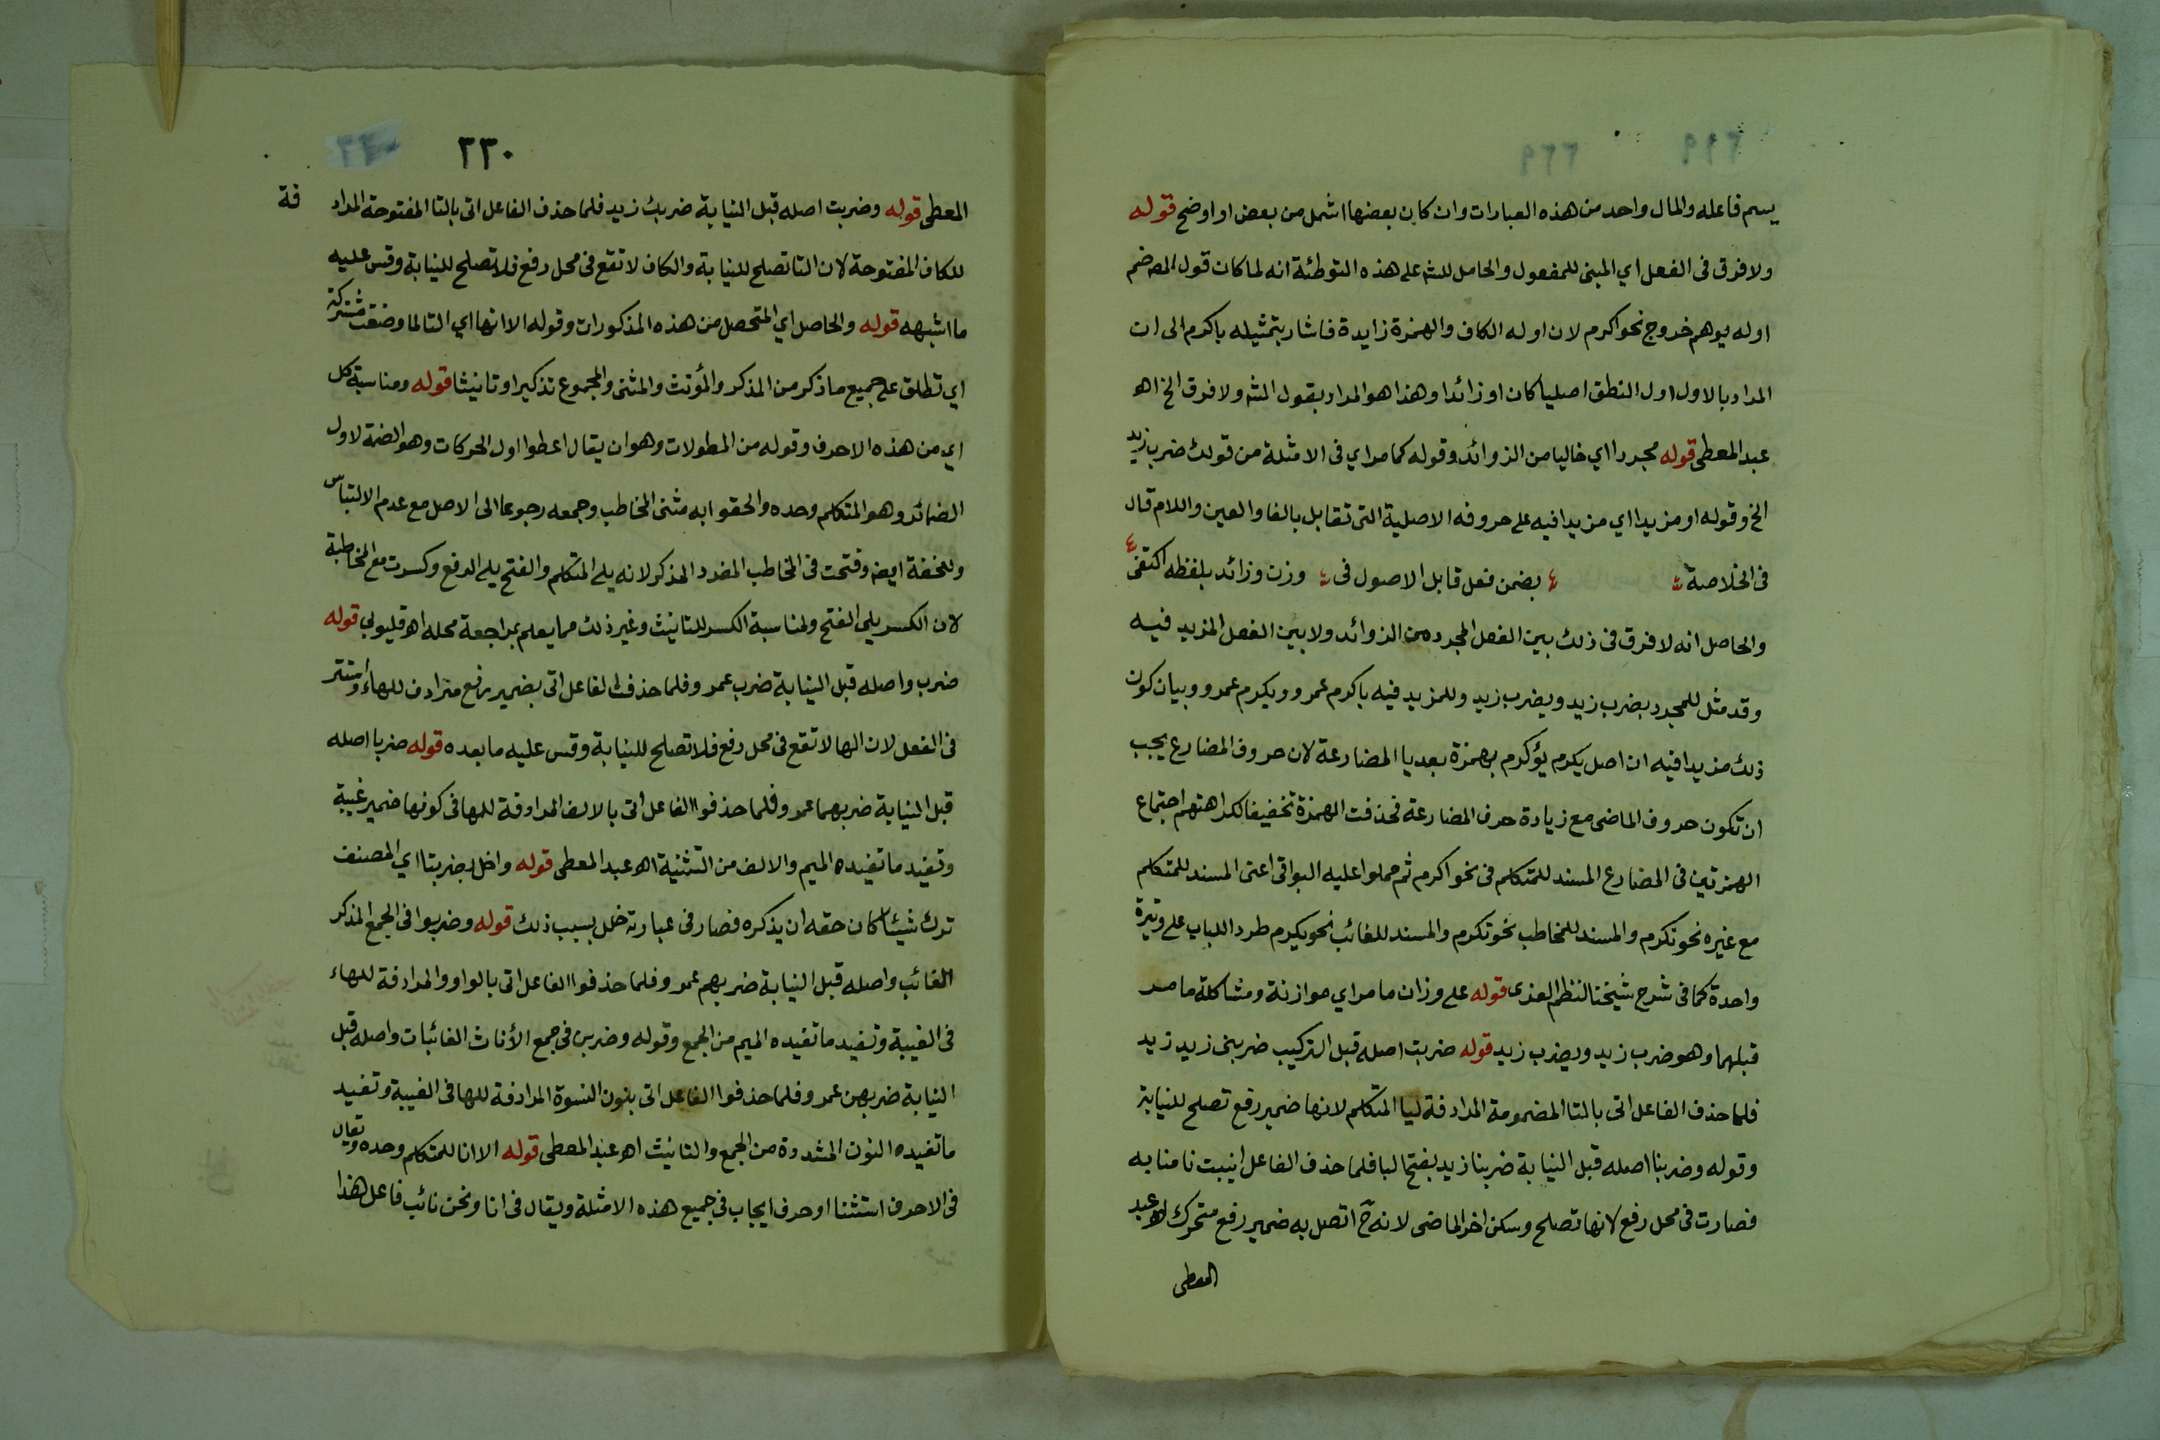 يسم فاعله والمال واحد من هذه العبارات وان كان بعضها اشمل من بعض او اوضح قوله
ولا فرق في الفعل اي المبني للمفعول والحامل للشه على هذه التوطئة انه لما كان قول المص ضم
اوله يوهم خروج نحو اكرم لان اوله الكاف والهمزة زايدة فاشار بتمثيله باكرم الى ان
المراد بالاول اول النطق اصليا كان او زائدا وهذا هو المراد بقول الشه ولا فرق الخ اه
عبد المعطى قوله مجردا اي خاليا من الزوائد وقوله كما مر اي في الامثلة من قولك ضرب زيد
الخ وقوله او مزيدا اي مزيدا فيه على حروفه الاصلية التى تقابل بالفا والعين واللام قال
فى الخلاصة بضمن فعل قابل الاصول فى وزن وزائد بلفظه اكتفى
والحاصل انه لا فرق فى ذلك بين الفعل المجرد من الزوائد ولا بين الفعل المزيد فيه
وقد مثل للمجرد بضرب زيد ويضرب زيد وللمزيد فيه باكرم عمرو ويكرم عمرو وبيان كون
ذلك مزيدا فيه ان اصل يكرم يؤكرم بهمزة بعد يا المضارعة لان حروف المضارع يجب
ان تكون حروف الماضى مع زيادة حرف المضارعة فحذفت الهمزة تخفيفا لكراهتهم اجتماع
الهمزتين فى المضارع المسند للمتكلم فى نحو اكرم ثم حملوا عليه البواقى اعنى المسند للمتكلم
مع غيره نحو نكرم والمسند للمخاطب نحو تكرم والمسند للغائب نحو يكرم طردا للباب على وتيرة
واحدة كما فى شرح شيخنا لنظم العزى قوله على وزان ما مر اي موازنة ومشاكلة ما مر
قبلهما وهو ضرب زيد ويضرب زيد قوله ضربت اصله قبل التركيب ضربنى زيد زيد
فلما حذف الفاعل اتى بالتا المضمومة المرادفة ليا المتكلم لانها ضمير رفع تصلح للنيابة
وقوله وضربنا اصله قبل النيابة ضربنا زيد بفتح البا فلما حذف الفاعل انيبت نا منابه
فصارت فى محل رفع لانها تصلح وسكن اخر الماضى لانه ح اتصل به ضمير رفع متحرك اه عبد
المعطى
٣٣٠
المعطى قوله وضربت اصله قبل النيابة ضربك زيد فلما حذف الفاعل اتى بالتا المفتوحة المراد فة
للكاف المفتوحة لان التا تصلح للنيابة والكاف لا تقع فى محل رفع فلا تصلح للنيابة وقس عليه
ما اشبهه قوله والحاصل اي المتحصل من هذه المذكورات وقوله الا انها اي التا لما وضعت مشتركة
اي تطلق على جميع ما ذكر من المذكر والمؤنث والمثنى والمجموع تذكيرا وتانيثا قوله ومناسبة كل
اي من هذه الاحرف وقوله من المطولات وهو ان يقال اعطوا اول الحركات وهو الضمة لاول
الضمائر وهو المتكلم وحده والحقوا به مثنى المخاطب وجمعه رجوعا الى الاصل مع عدم الالتباس
وللخفة ايضه وفتحت فى المخاطب المفرد المذكر لانه يلى المتكلم والفتح يلى الرفع وكسرت مع المخاطبة
لان الكسر يلي الفتح ولمناسبة الكسر للتانيث وغير ذلك مما يعلم بمراجعة محله اه قليوبي قوله
ضرب واصله قبل النيابة ضرب عمرو فلما حذف الفاعل اتى بضمير رفع مترادف للهاء واستتر
فى الفعل لان الها لا تقع فى محل رفع فلا تصلح للنيابة وقس عليه ما بعده قوله ضربا اصله
قبل النيابة ضربهما عمرو فلما حذفوا الفاعل اتى بالالف المرادفة للها فى كونها ضمير غيبة
وتفيد ما تفيده الميم والالف من التثنية اه عبد المعطى قوله واخل بضربتا اي المصنف
ترك شيئا كان حقه ان يذكره فصار فى عبارته خلل بسبب ذلك قوله وضربوا فى الجمع المذكر
الغائب واصله قبل النيابة ضربهم عمرو فلما حذفوا الفاعل اتى بالواو والمرادفة للهاء
فى الغيبة وتفيد ما تفيده الميم من الجمع وقوله وضربن فى جمع الأناث الغائبات واصله قبل
النيابة ضربهن عمرو فلما حذفوا الفاعل اتى بنون النسوة المرادفة للها فى الغيبة وتفيد
ما تفيده النون المشددة من الجمع والتانيث اه عبد المعطى قوله الا انا للمتكلم وحده ويقال
فى الا حرف استثنا او حرف ايجاب فى جميع هذه الامثلة ويقال فى انا ونحن نائب فاعل هذا